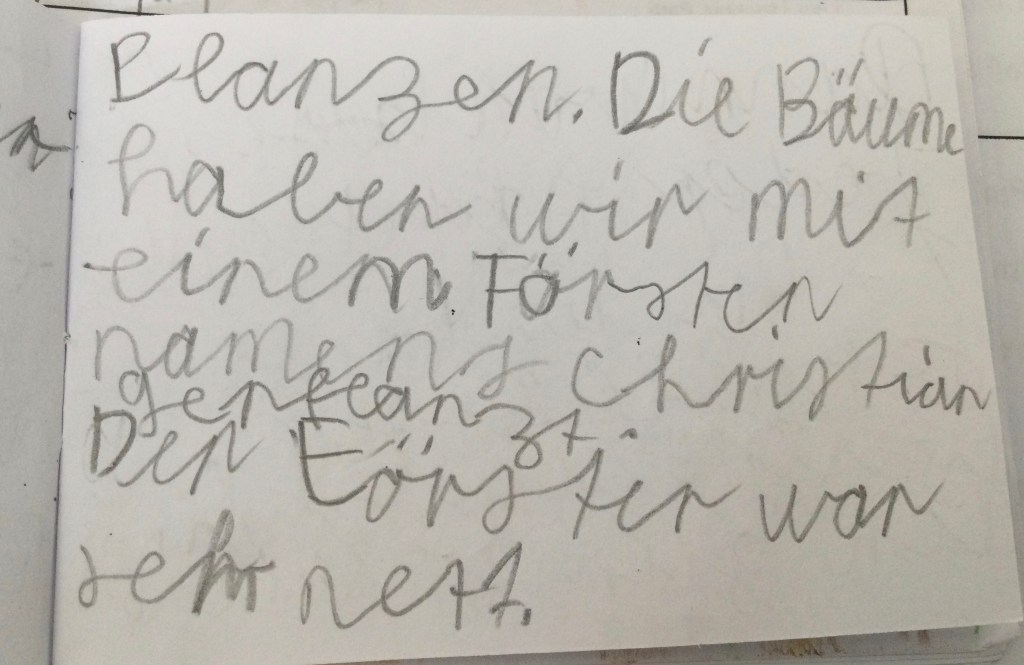 Blanzen. Die Bäume
haben wir mit
einem. Försten
namens Christian
genflanzt.
Der Förster war
sehr nett.